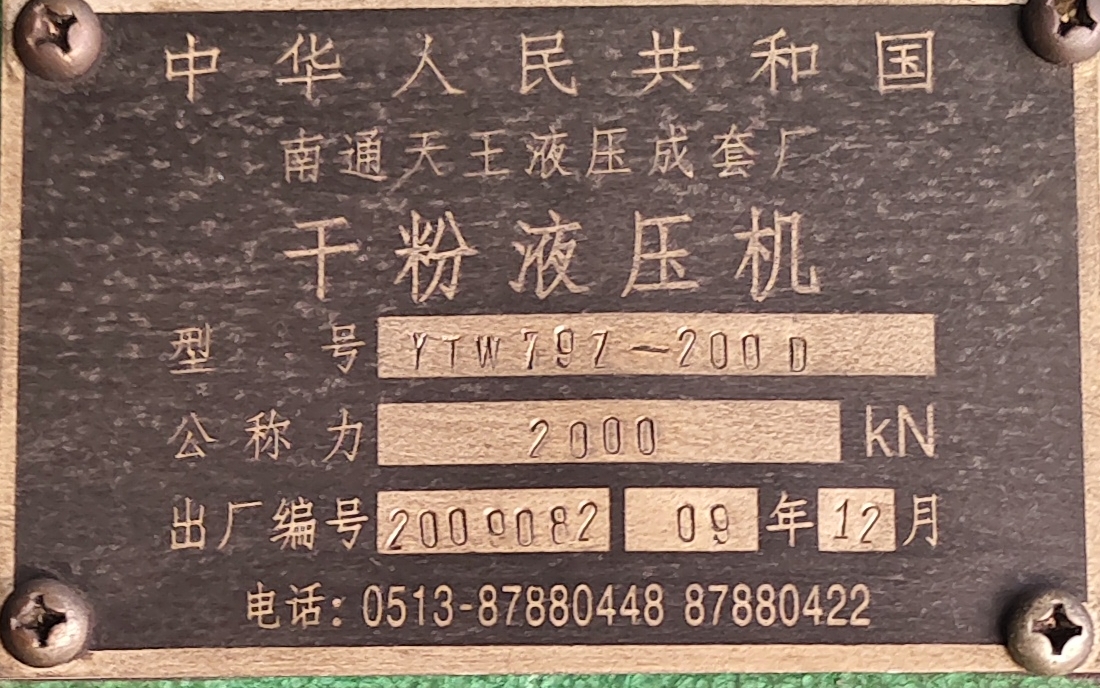 中华人民共和国
南通天王液压成套厂
干粉液压机
型号 YTW79Z-200D
公称力 2000 kN
出厂编号 2009082 09 年 12 月
电话: 0513-87880448 87880422